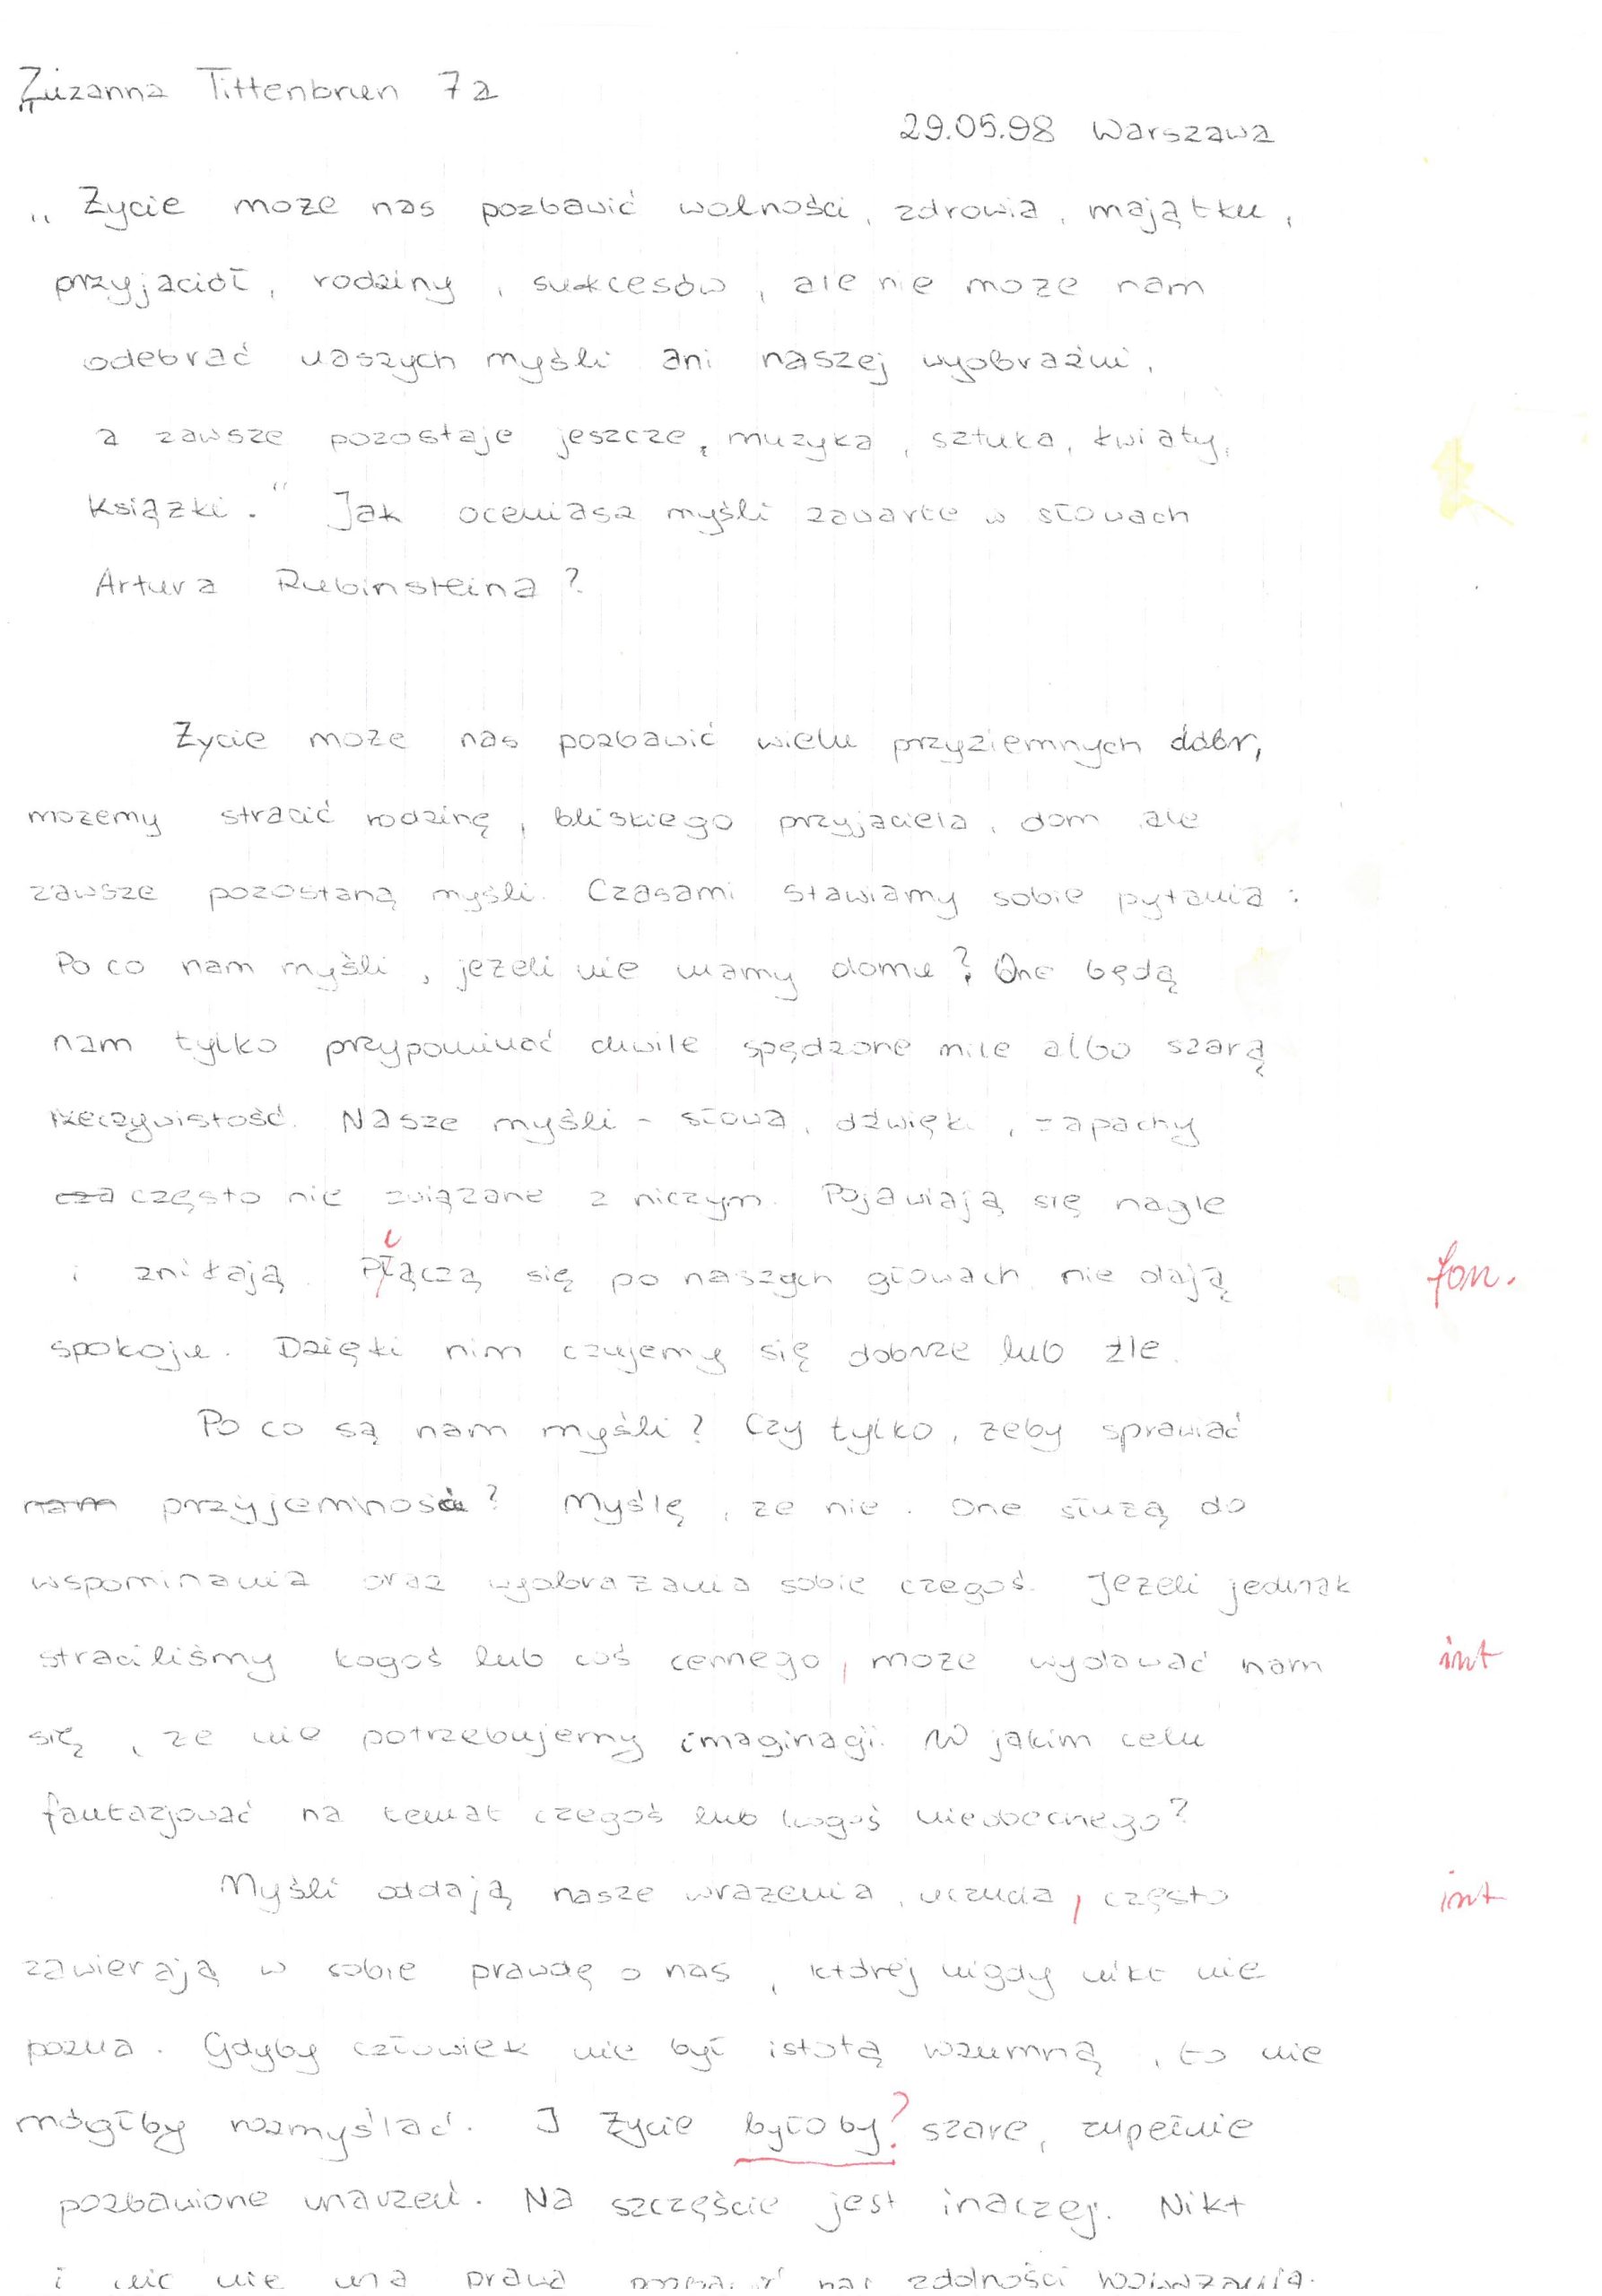 Zuzanna Tittenbrun 7a
29.05.98 Warszawa
„Życie może nas pozbawić wolności, zdrowia, majątku,
przyjaciół, rodziny, sukcesów, ale nie może nam
odebrać naszych myśli ani naszej wyobraźni,
a zawsze pozostaje jeszcze, muzyka, sztuka, kwiaty,
książki." Jak oceniasz myśli zawarte w słowach
Artura Rubinsteina?
Życie może nas pozbawić wielu przyziemnych dóbr,
możemy stracić rodzinę, bliskiego przyjaciela, dom ale
zawsze pozostaną myśli. Czasami stawiamy sobie pytania:
Po co nam myśli, jeżeli nie mamy domu? One będą
nam tylko przypominać chwile spędzone mile albo szarą
rzeczywistość. Nasze myśli - słowa, dźwięki, zapachy
cza często nie związane z niczym. Pojawiają się nagle
i znikają. Płączą się po naszych głowach nie dają fon.
spokoju. Dzięki nim czujemy się dobrze lub źle.
Po co są nam myśli? Czy tylko, żeby sprawiać
nam przyjemność? Myślę, że nie. One służą do
wspominania oraz wyobrażania sobie czegoś. Jeżeli jednak
straciliśmy kogoś lub coś cennego, może wydawać nam int
się, że nie potrzebujemy imaginagi. W jakim celu
fantazjować na temat czegoś lub kogoś nieobecnego?
Myśli oddają nasze wrażenia, uczucia, często int
zawierają w sobie prawdę o nas, której nigdy nikt nie
pozna. Gdyby człowiek nie był istotą rozumną, to nie
mógłby rozmyślać. I życie byłoby? szare, zupełnie
pozbawione marzeń. Na szczęście jest inaczej. Nikt
i nic nie ma prawa pozbawić nas zdolności